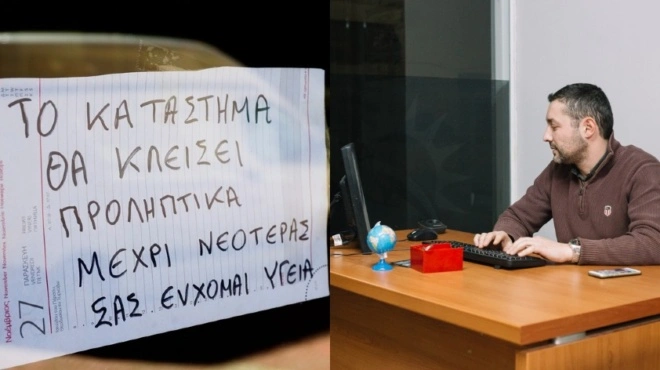 ΤΟ ΚΑΤΑΣΤΗΜΑ
ΘΑ ΚΛΕΙΣΕΙ
ΠΡΟΛΗΠΤΙΚΑ
ΜΕΧΡΙ ΝΕΟΤΕΡΑΣ
ΣΑΣ ΕΥΧΟΜΑΙ ΥΓΕΙΑ
27
Νοέμβριος
ΠΑΡΑΣΚΕΥΗ